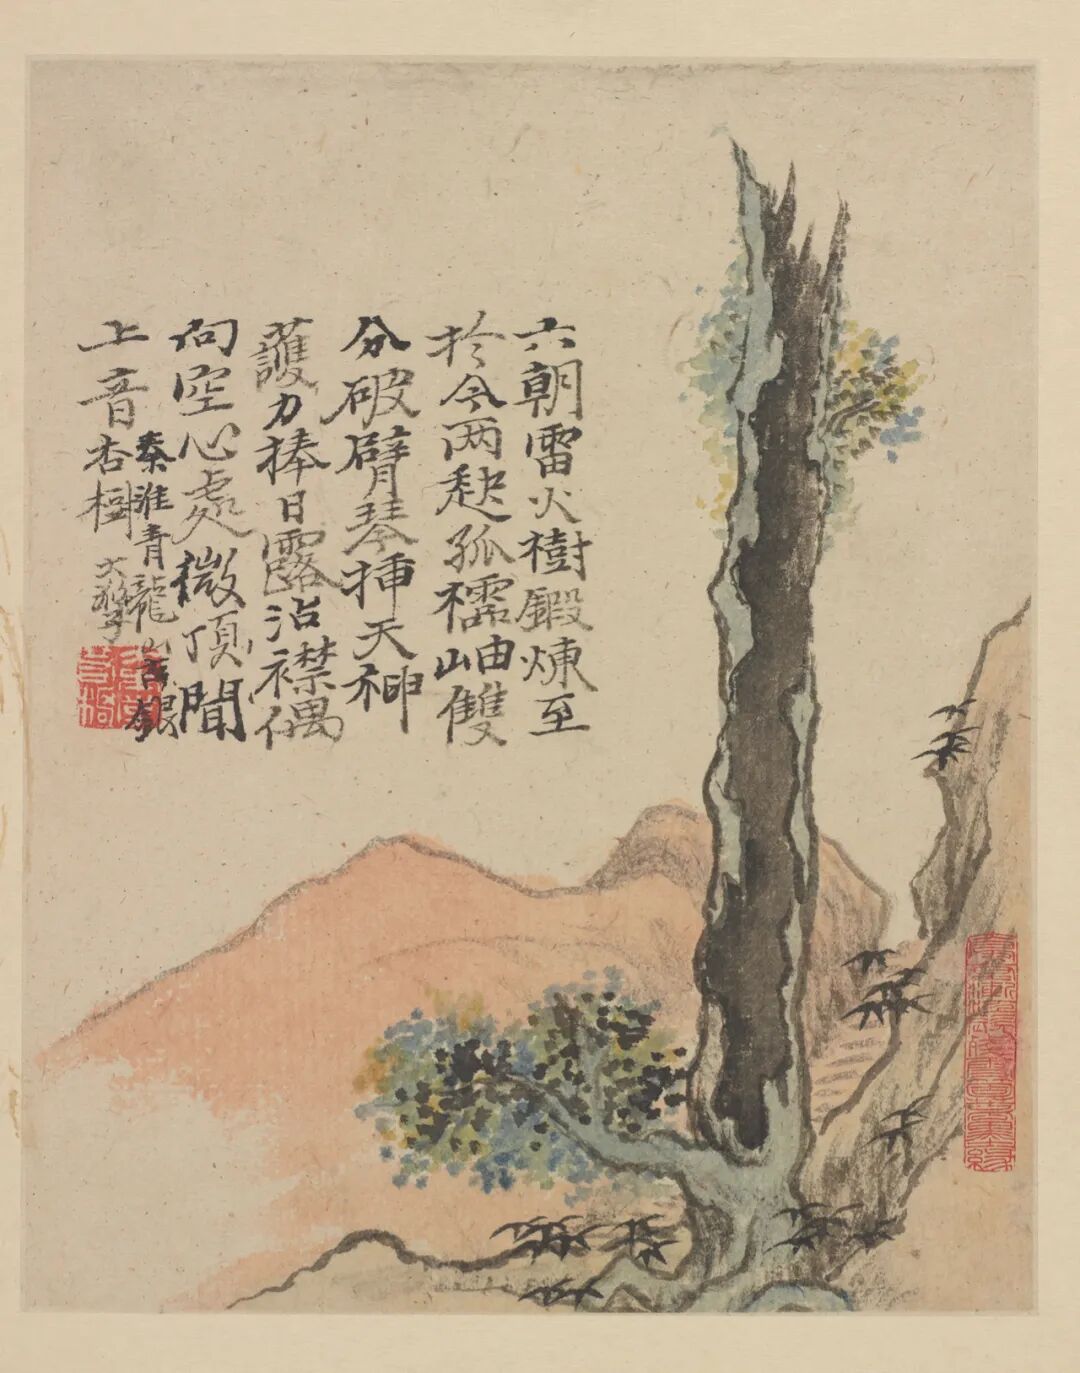 六朝雷火樹鍛煉至
於今兩
孤
岫雙
分破臂琴揷天神
護力捧日露沾襟偶
向空心處微頂聞
上音
秦淮青龍山古銀
杏樹
大